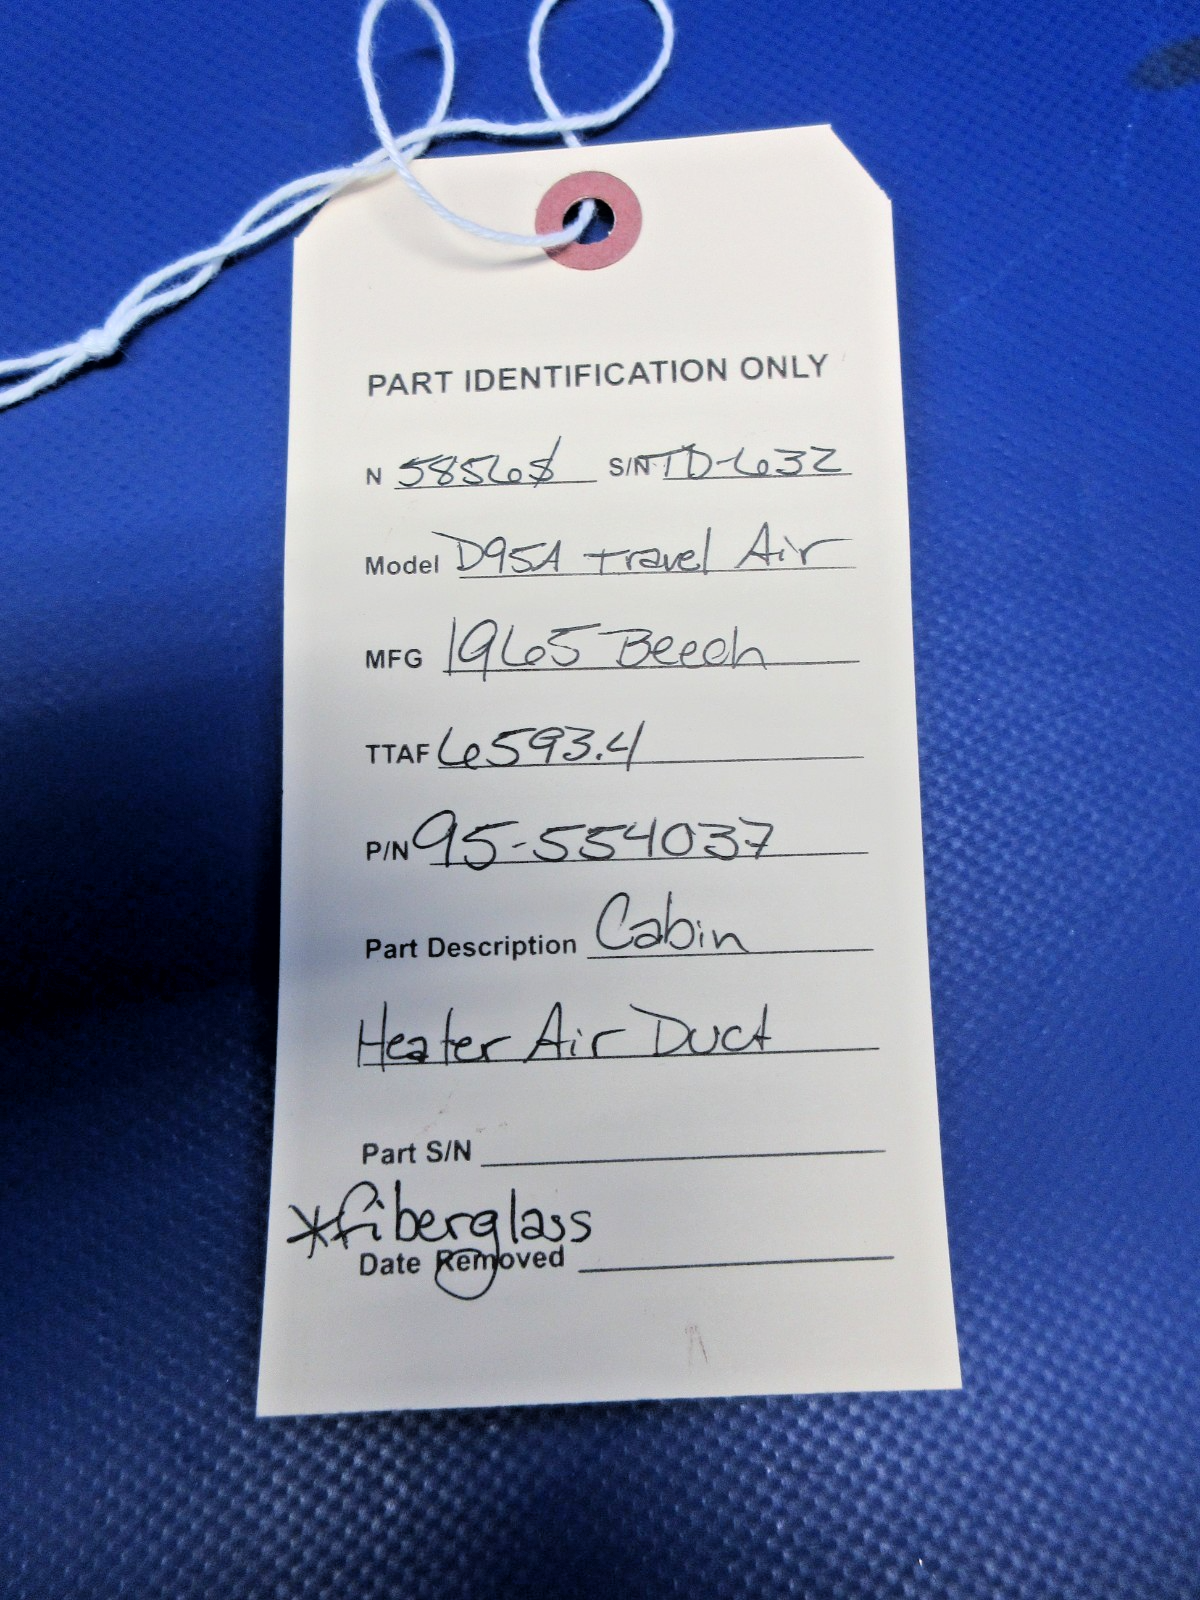 PART IDENTIFICATION ONLY
N 5856S S/N TD-632
Model D95A Travel Air
MFG 1965 Beech
TTAF 6593.4
P/N 95-554037
Part Description Cabin
Heater Air Duct
Part S/N
*fiberglass
Date Removed